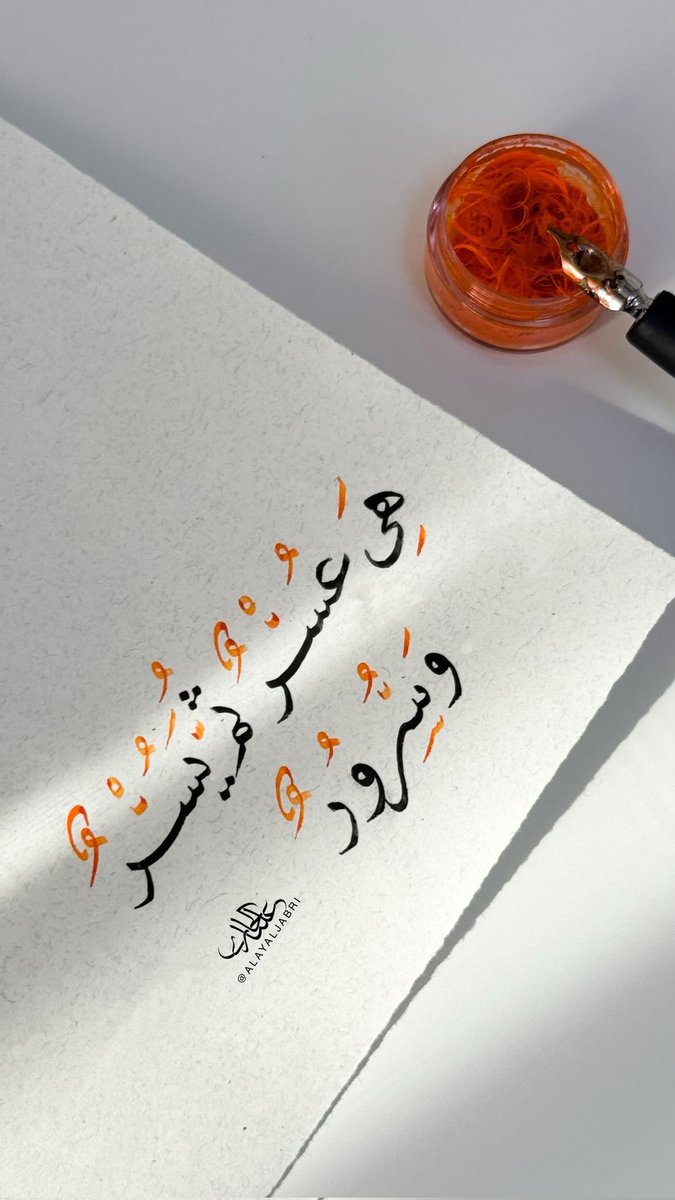 هِيَ عُسْرٌ ثُمَّ يُسْرٌ
وَسُرُورٌ
@ALAYALJABRI